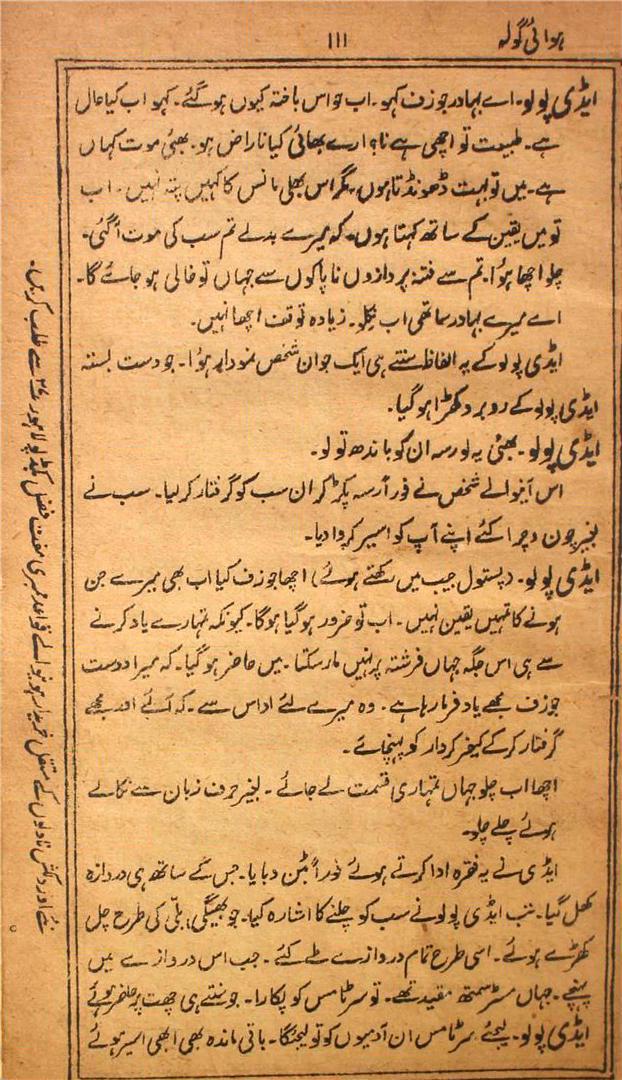 ہوائی گولہ
۱۱۱
ایڈی پولو۔ اے بہادر جوزف کہو۔ اب حواس باختہ کیوں ہو گئے۔ کہو اب کیا حال
ہے۔ طبیعت تو اچھی ہے نا؟ ارے بھائی کیا ناراض ہو۔ بھئی موت کہاں
ہے۔ میں تو بہت ڈھونڈتا ہوں مگر اس بھلی مانس کا کہیں پتہ نہیں۔ اب
تو میں یقین کے ساتھ کہتا ہوں۔ کہ میرے بدلے تم سب کی موت آ گئی۔
چلو اچھا ہؤا۔ تم سے فتنہ پردازوں ناپاکوں سے جہاں تو خالی ہو جائے گا۔
اے میرے بہادر ساتھی اب نکلو۔ زیادہ توقف اچھا نہیں۔
ایڈی پولو کے یہ الفاظ سنتے ہی ایک جوان شخص نمودار ہؤا۔ جو دست بستہ
ایڈی پولو کے روبرو کھڑا ہو گیا۔
ایڈی پولو۔ بھئی یہ لو رسہ ان کو باندھ تو لو۔
اس آنیوالے شخص نے فوراً رسہ پکڑ کر ان سب کو گرفتار کر لیا۔ سب نے
بغیر چون و چرا کئے اپنے آپ کو اسیر کروا دیا۔
ایڈی پولو۔ (پستول جیب میں رکھتے ہوئے) اچھا جوزف کیا اب بھی میرے جن
ہونے کا تمہیں یقین نہیں۔ اب تو ضرور ہو گیا ہوگا۔ کیونکہ تمہارے یاد کرنے
سے ہی اس جگہ جہاں فرشتہ پر نہیں مار سکتا۔ میں حاضر ہو گیا۔ کہ میرا دوست
جوزف مجھے یاد فرما رہا ہے۔ وہ میرے لئے اداس ہے۔ کہ آئے اور مجھے
گرفتار کر کے کیفر کردار کو پہنچائے۔
اچھا اب چلو جہاں تمہاری قسمت لے جائے۔ بغیر حرف زبان سے نکالے
ہوئے چلے چلو۔
ایڈی نے یہ فقرہ ادا کرتے ہوئے فوراً بٹن دبایا۔ جس کے ساتھ ہی دروازہ
کھل گیا۔ تب ایڈی پولو نے سب کو چلنے کا اشارہ کیا۔ جو بھیگی بلی کی طرح چل
کھڑے ہوئے۔ اسی طرح تمام دروازے طے کئے۔ جب اس دروازے میں
پہنچے۔ جہاں مسٹر سمتھ مقید تھے۔ تو سر ٹامس کو پکارا۔ جو سنتے ہی جھٹ حاضر ہوئے
ایڈی پولو۔ لیجئے سر ٹامس ان آدمیوں کو تو لیجئگا۔ باقی ماندہ بھی ابھی اسیر ہوئے
نئے اور دلکش ناولوں کے مستقل خریدار ہونیوالے قواعد ممبری مفت فضل بکڈپو لاہور سے طلب کریں۔